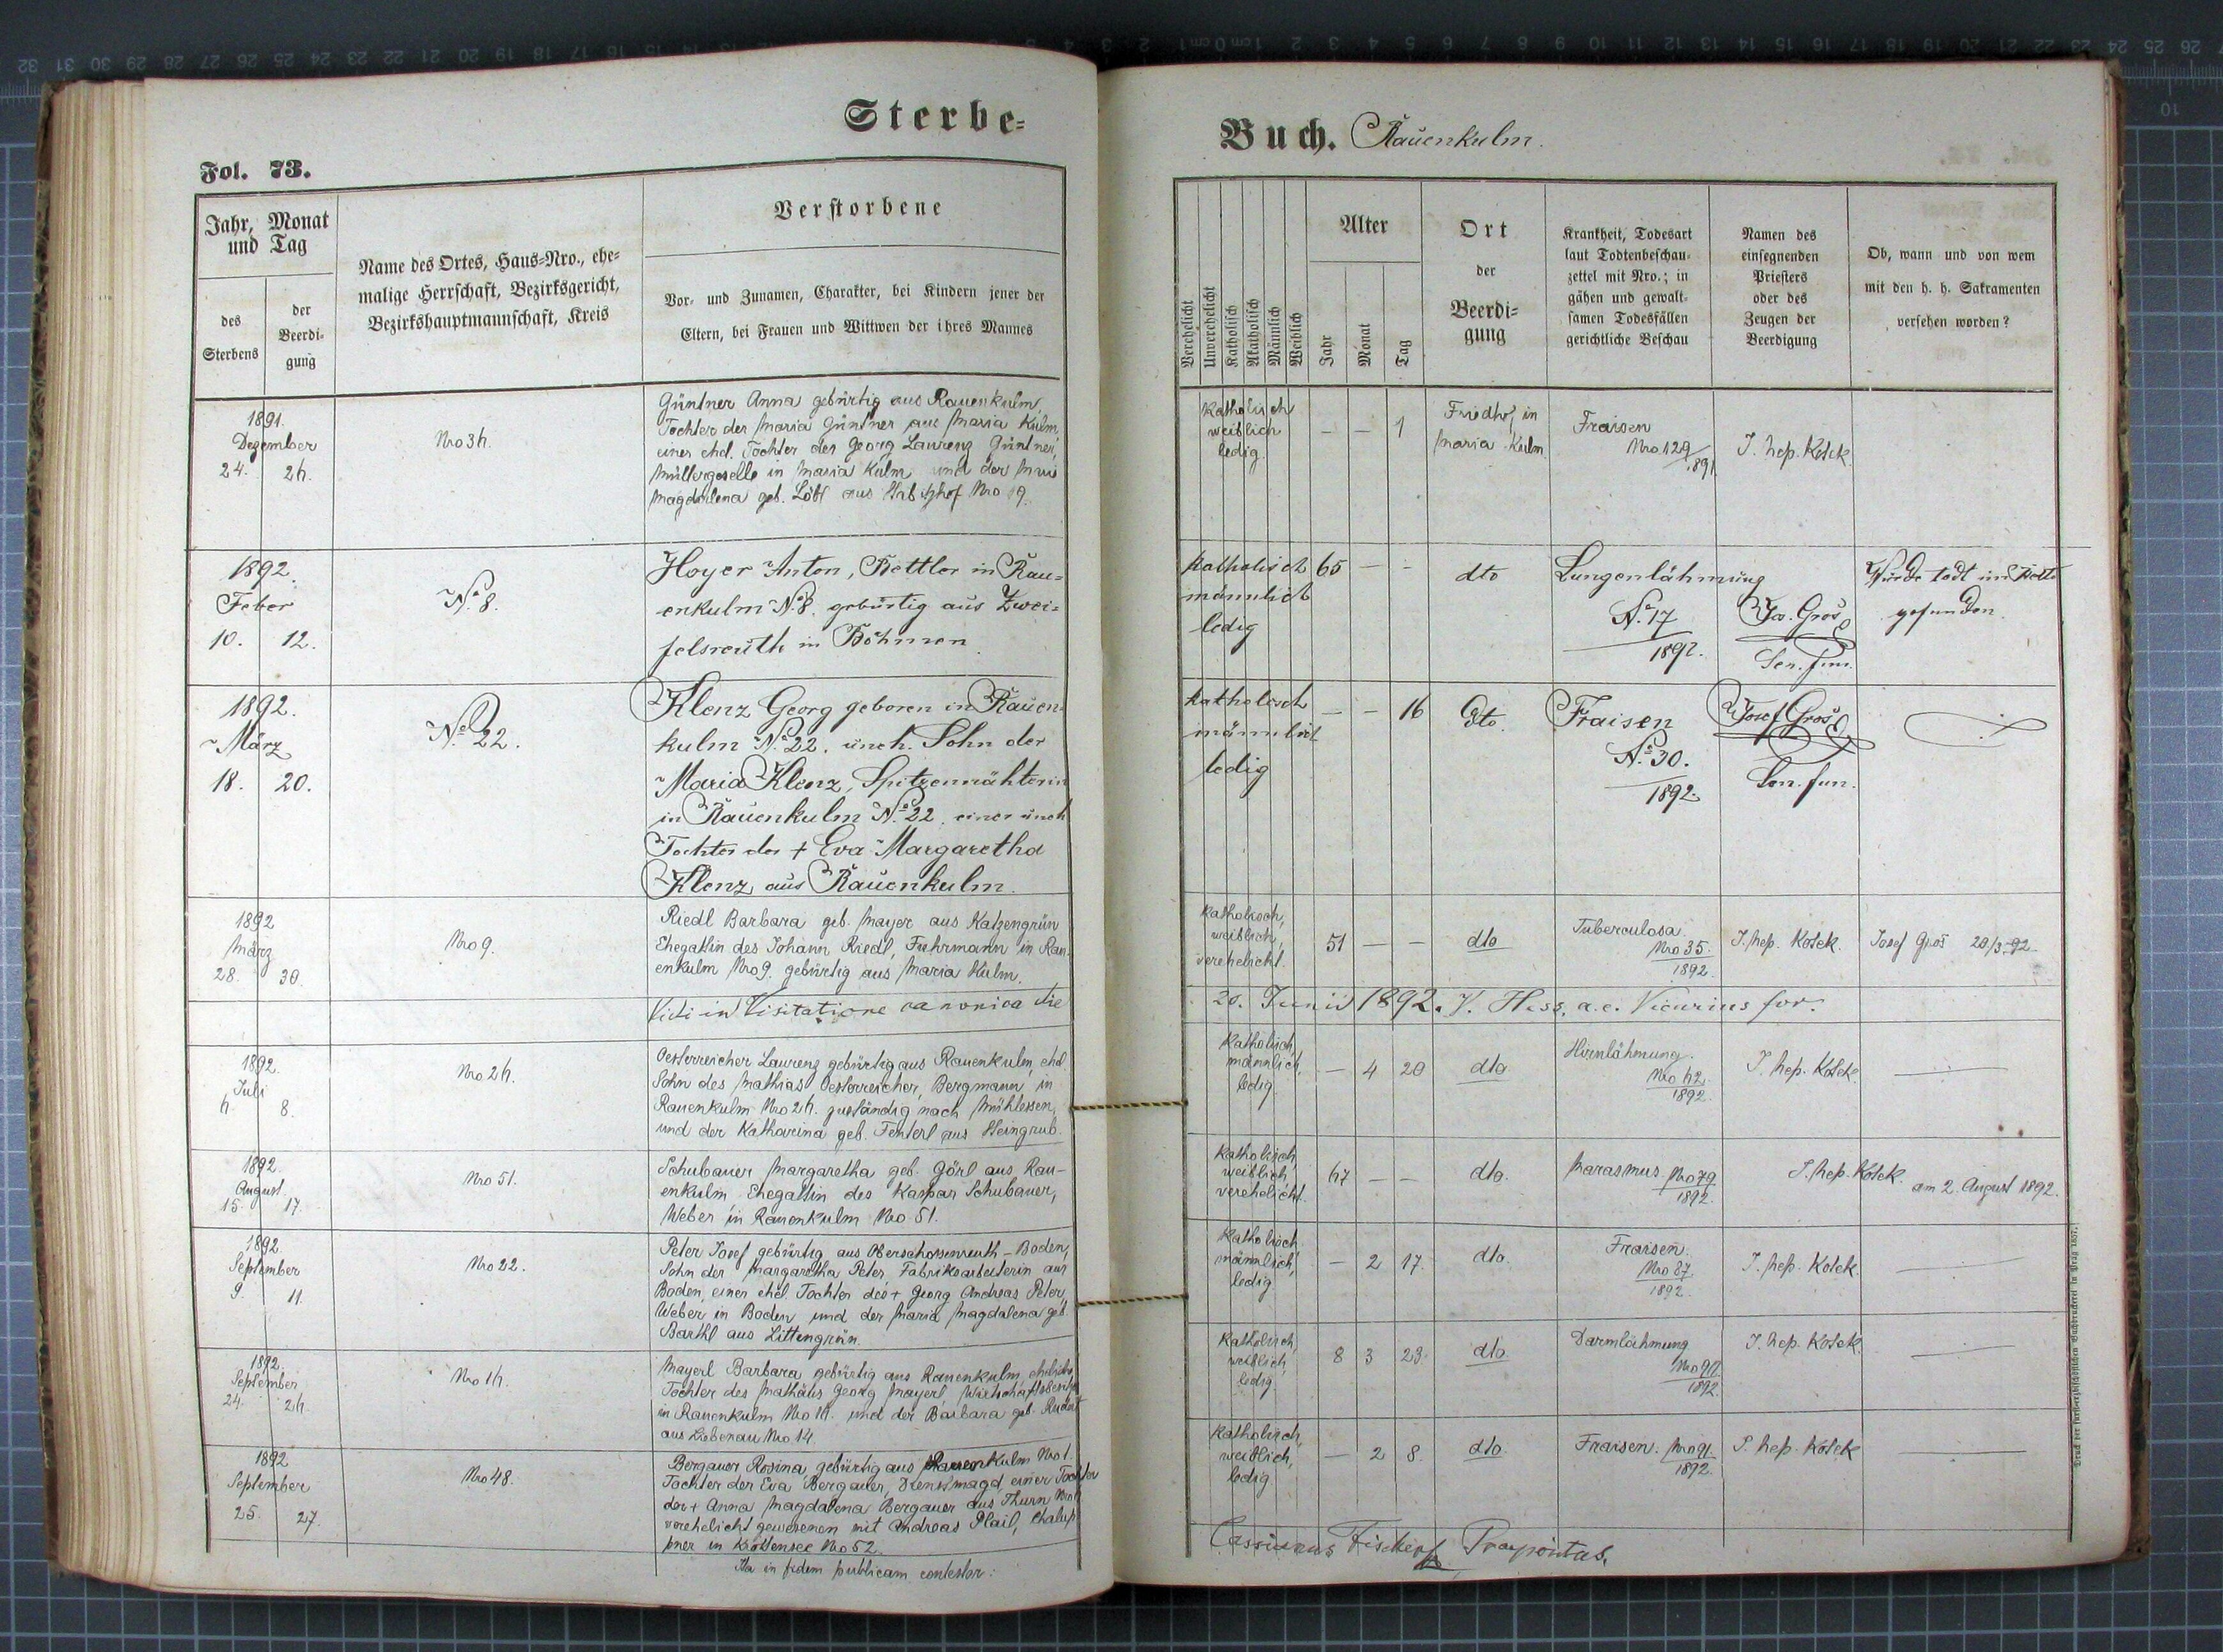 Sterbe=
Fol. 73.
Jahr, Monat
und Tag
des
Sterbens
der
Beerdi-
gung
Name des Ortes, Haus=Nro., ehe=
malige Herrschaft, Bezirksgericht,
Bezirkshauptmannschaft, Kreis
Verstorbene
Vor= und Zunamen, Charakter, bei Kindern jener der
Eltern, bei Frauen und Wittwen der ihres Mannes
1891.
Dezember
24. 26.
Nro 34.
Güntner Anna gebürtig aus Rauenkulm
Tochter der Maria Güntner aus Maria Kulm,
einer ehel. Tochter des Georg Laurenz Güntner,
Müllergeselle in Maria Kulm und der
Magdalena geb. Löbl aus Habitzhof Nro 19.
1892.
Feber
10. 12.
No. 8.
Hoyer Anton, Bettler in Rau=
enkulm No. 8. gebürtig aus Zwei=
felsreuth in Böhmen.
1892.
März
18. 20.
No. 22.
Klenz Georg geboren in Rauen=
kulm No. 22. uneh. Sohn der
Maria Klenz, Spitzennähterin
in Rauenkulm No. 22. einer uneh
Tochter der + Eva Margaretha
Klenz aus Rauenkulm.
1892
März
28. 30.
Nro 9.
Riedl Barbara geb. Mayer aus Katzengrün
Ehegattin des Johann Riedl, Fuhrmann in Rau-
enkulm Nro 9. gebürtig aus Maria Kulm.
Vidi in Visitatione canonica die
1892.
Juli
6. 8.
Nro 24.
Oesterreicher Laurenz gebürtig aus Rauenkulm, ehel.
Sohn des Mathias Oesterreicher, Bergmann in
Rauenkulm Nro 24. zuständig nach Mühlessen,
und der Katharina geb. Fenterl aus Steingrub.
1892.
August.
15. 17.
Nro 51.
Schubauer Margaretha geb. Görl aus Rau-
enkulm Ehegattin des Kaspar Schubauer,
Weber in Rauenkulm Nro 51.
1892.
September
9. 11.
Nro 22.
Peter Josef gebürtig aus Oberschossenreuth - Boden,
Sohn der Margaretha Peter, Fabriksarbeiterin aus
Boden, einer ehel. Tochter des + Georg Andreas Peter,
Weber in Boden und der Maria Magdalena geb.
Barthl aus Littengrün.
1892.
September
24. 26.
Nro 14.
Mayerl Barbara gebürtig aus Rauenkulm, eheliche
Tochter des Mathäus Georg Mayerl, Wirtschaftsbesitzer
in Rauenkulm Nro 14. und der Barbara geb.
aus Liebenau Nro 14.
1892
September
25. 27.
Nro 48.
Bergauer Rosina, gebürtig aus Rauenkulm Nro 1.
Tochter der Eva Bergauer, Dienstmagd, einer Tochter
der + Anna Magdalena Bergauer aus Thurn
verehelicht gewesenen mit Andreas Plail, Chalup
pner in Krottensee Nro 52.
Ita in fidem publicam contestor:
Buch. Rauenkulm.
Verehelicht
Unverehelicht
Katholisch
Akatholisch
Männlich
Weiblich
Alter
Jahr
Monat
Tag
Ort
der
Beerdi=
gung
Krankheit, Todesart
laut Todtenbeschau=
zettel mit Nro.; in
gähen und gewalt=
samen Todesfällen
gerichtliche Beschau
Namen des
einsegnenden
Priesters
oder des
Zeugen der
Beerdigung
Ob, wann und von wem
mit den h. h. Sakramenten
versehen worden?
Katholisch
weiblich
ledig.
— — 1
Friedhof in
Maria Kulm
Fraisen
Nro 129
1891
J. Nep. Kotek.
katholisch 65 — -
männlich
ledig
dto
Lungenlähmung
No. 17
1892.
Jos. Gros
Sen. fun.
Wurde todt im Bette
gefunden.
katholisch
männlich
ledig
— — 16
dto.
Fraisen
No. 30.
1892.
Josef Gros
Sen. fun.
Katholisch,
weiblich,
verehelicht.
51 — —
dto
Tuberculosa.
Nro 35.
1892.
J. Nep. Kotek.
Josef Gros 20/3 92.
20. Junii 1892. V. Hess, a.e. Vicarius for.
Katholisch
männlich,
ledig
— 4 20
dto
Hirnlähmung.
Nro 62.
1892.
J. Nep. Kotek.
Katholisch
weiblich
verehelicht.
67 — —
dto.
Marasmus Nro 79
1892.
J. Nep. Kotek.
am 2. August 1892.
Katholisch
männlich,
ledig
— 2 17.
dto.
Fraisen.
Nro 87.
1892.
J. Nep. Kotek
Katholisch,
weiblich
ledig.
8 3 23.
dto.
Darmlähmung
1892.
J. Nep. Kotek.
Katholisch,
weiblich,
ledig
— 2 8.
dto.
Fraisen. Nro 91.
1892.
J. Nep. Kotek
Cassianus Fischer Praepositus.